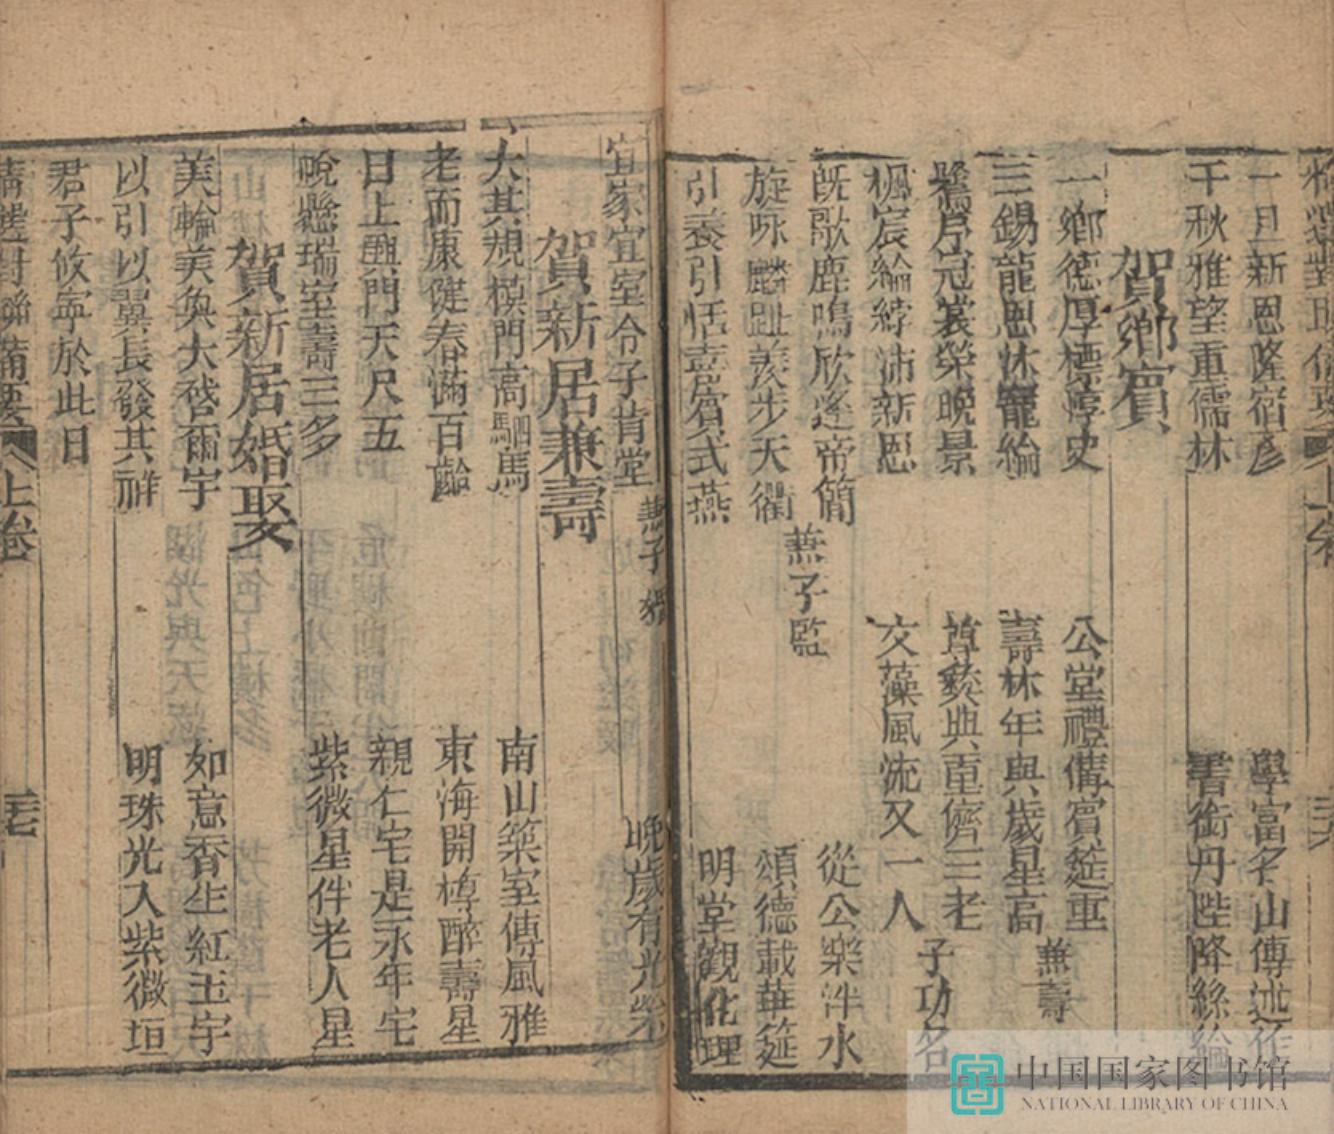 一月新恩隆宿彦
學富名山傳述作
千秋雅望重儒林
書銜丹陛降絲綸
賀鄉賓
一鄉德厚標惇史
公堂禮備賓筵重
三錫龍恩休寵綸
壽林年與歲星高
兼壽
鷟序冠裳榮晩景
尊彜典重儕三老
楓宸綸綍沛新恩
文藻風流又一人
子功名
旣歌鹿鳴欣逢帝簡
從公樂泮水
旋咏麟趾羨步天衢
頌德載華筵
兼子監
引養引恬嘉賓式燕
明堂觀化理
宜家宜室令子肯堂
晩歲有光榮
兼子婚
賀新居兼壽
大其規模門高駟馬
南山築室傳風雅
老而康健春滿百齡
東海開樽醉壽星
日上題門天尺五
親仁宅是永年宅
晩懸瑞室壽三多
紫微星伴老人星
賀新居婚娶
美輪美奐大啓爾宇
如意香生紅玉宇
以引以翼長發其祥
明珠光入紫微垣
君子攸寧於此日
對聯備要
上卷
三七
中国国家图书馆
NATIONAL LIBRARY OF CHINA